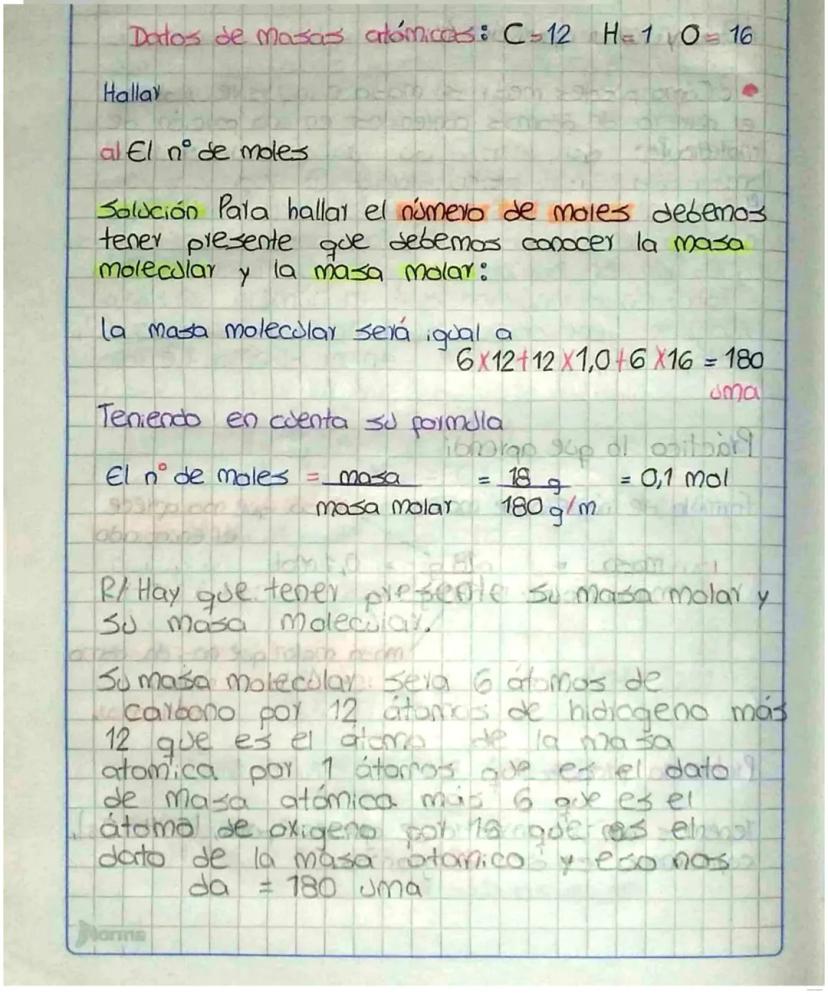 Datos de masas atómicas: C=12 H=1 O=16
Hallar
a) El nº de moles
Solución Para hallar el número de moles debemos
tener presente que debemos conocer la masa
molecular y la masa molar:
la masa molecular será igual a
6x12+12x1,0+6x16 = 180
uma
Teniendo en cuenta su formula
El nº de moles = masa = 18 g = 0,1 mol
masa molar 180 g/m
R/ Hay que tener presente su masa molar y
su masa molecular.
Su masa molecular sera 6 átomos de
carbono por 12 átomos de hidrogeno más
12 que es el átomo de la masa
atomica por 1 átomos que es el dato
de masa atómica más 6 que es el
átomo de oxigeno por 16 que es el
dato de la masa atomico y eso nos
da = 180 uma
Norma